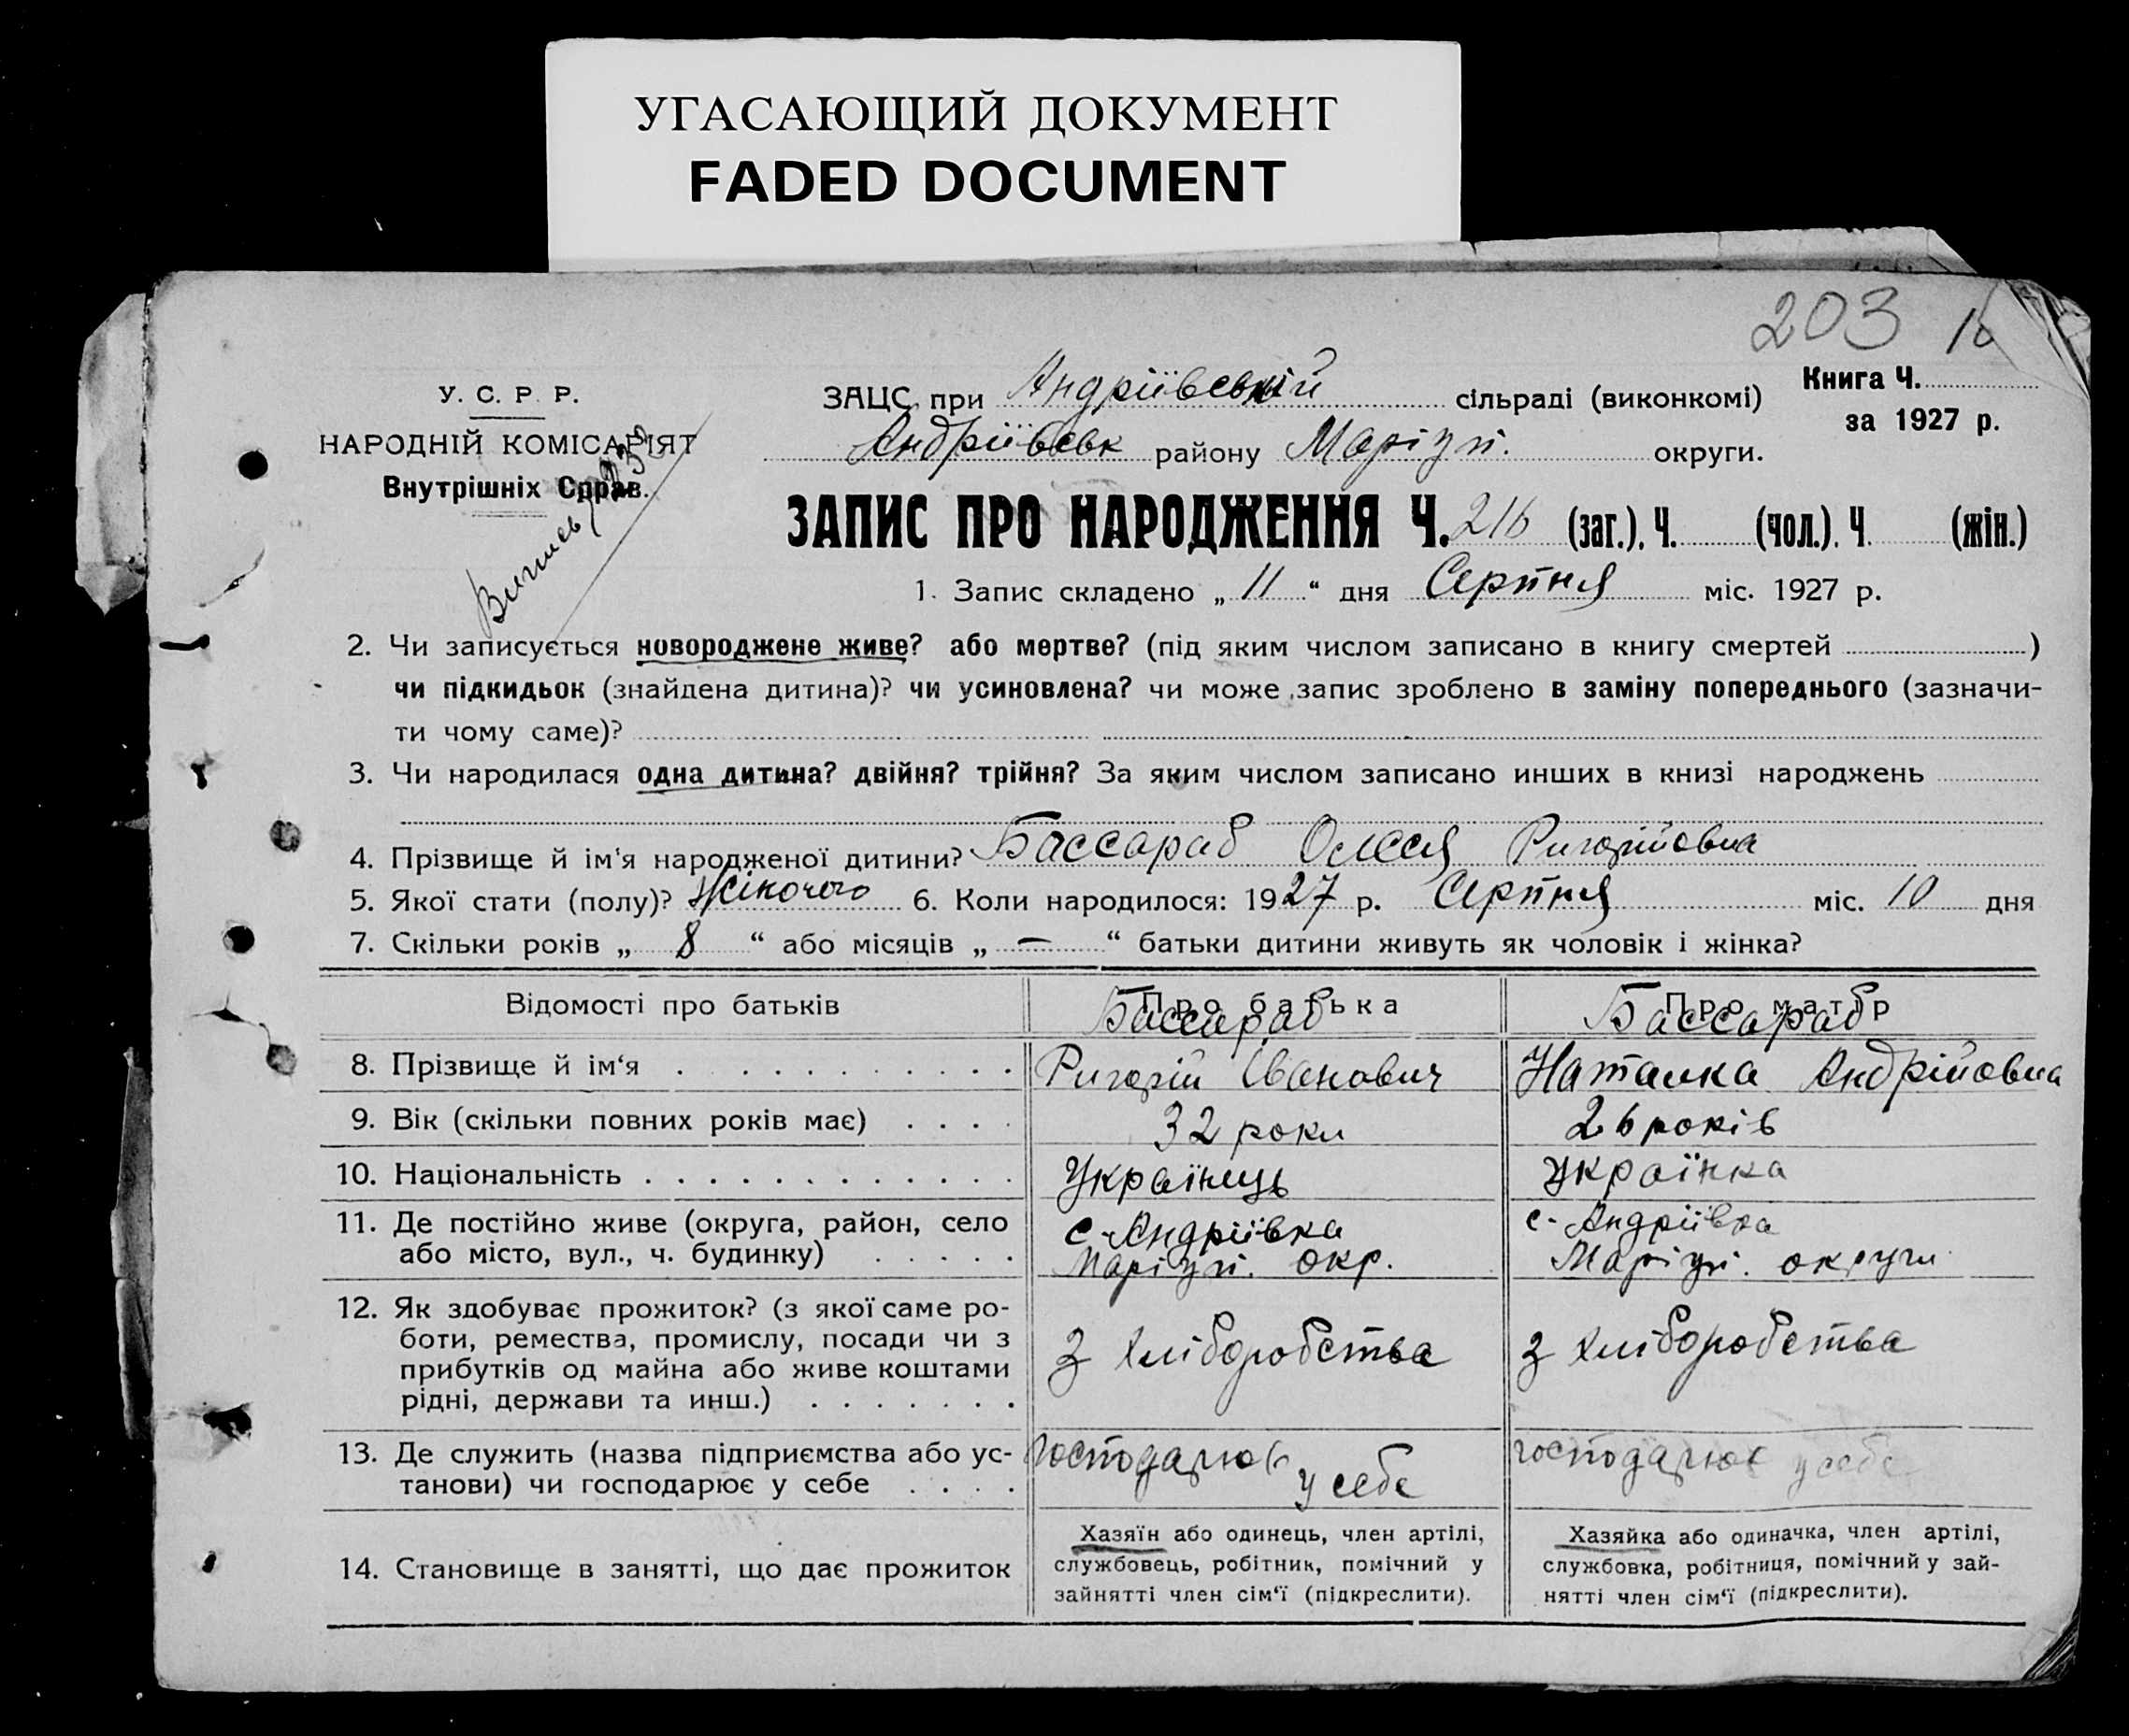 УГАСАЮЩИЙ ДОКУМЕНТ
FADED DOCUMENT
203
У. С. Р Р.
НАРОДНІЙ КОМІСАРІЯТ
Внутрішніх Справ.
ЗАЦС при Андріївській сільраді (виконкомі)
Книга Ч.
за 1927 р.
Андріївськ району Маріуп. округи.
ЗАПИС ПРО НАРОДЖЕННЯ Ч. 216 (заг.). Ч. (чол.). Ч (жін.)
1. Запис складено „ 11 “ дня Серпня міс. 1927 р.
2. Чи записується новороджене живе? або мертве? (під яким числом записано в книгу смертей )
чи підкидьок (знайдена дитина)? чи усиновлена? чи може запис зроблено в заміну попереднього (зазначи-
ти чому саме)?
3. Чи народилася одна дитина? двійня? трійня? За яким числом записано инших в книзі народжень
4. Прізвище й ім'я народженої дитини? Бассараб Олеся Ригорійовна
5. Якої стати (полу)? Жіночого 6. Коли народилося: 1927 р. Серпня міс. 10 дня
7. Скільки років „ 8 “ або місяців „ — “ батьки дитини живуть як чоловік і жінка?
Відомості про батьків Про батька Про матір
Бассараб Бассараб
8. Прізвище й ім‘я Ригорій Іванович Наталка Андрійовна
9. Вік (скільки повних років має) 32 роки 26 років
10. Національність Українець Українка
11. Де постійно живе (округа, район, село с. Андріївка с. Андріївка
або місто, вул., ч. будинку) Маріуп. окр. Маріуп. округи
12. Як здобуває прожиток? (з якої саме ро-
боти, ремества, промислу, посади чи з з хліборобства з хліборобства
прибутків од майна або живе коштами
рідні, держави та инш.)
13. Де служить (назва підприємства або ус- господарює господарює у себе
танови) чи господарює у себе у себе
14. Становище в занятті, що дає прожиток
Хазяїн або одинець, член артілі,
службовець, робітник, помічний у
зайнятті член сім‘ї (підкреслити).
Хазяйка або одиначка, член артілі,
службовка, робітниця, помічний у зай-
нятті член сім‘ї (підкреслити).